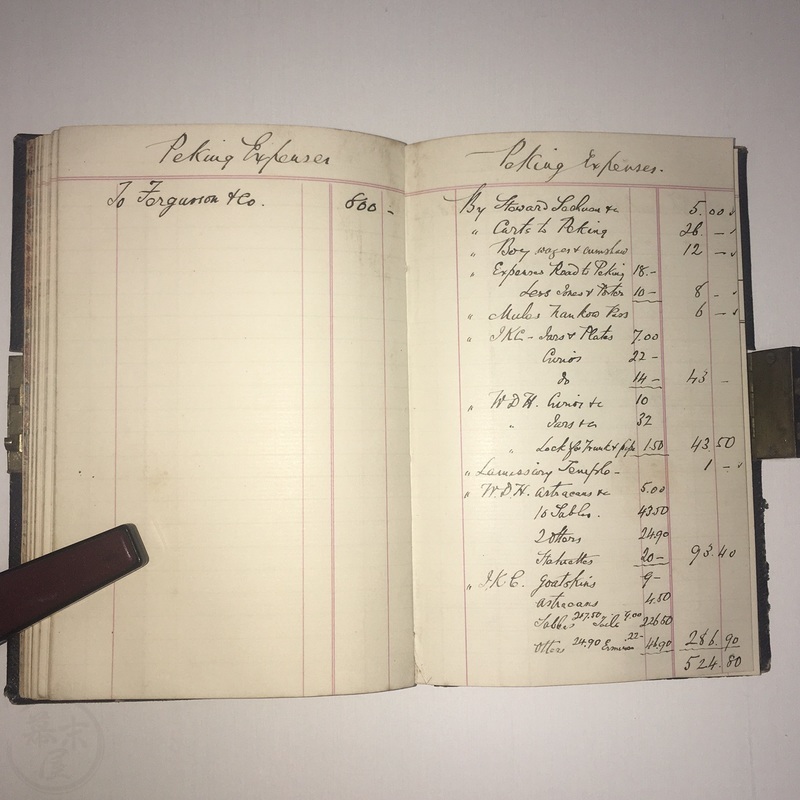 Peking Expenses
To Ferguson & Co. 600 -
Peking Expenses.
By Steward &c 5.00
" Carts to Peking 26. -
" Boy wages & cumshaw 12 -
" Expenses Road to Peking 18.-
Less Jones & Porter 10 - 8 -
" Mules Nankow Pass 6 -
" J.K.C - Jars & Plates 7.00
Curios 22 -
Do 14 - 43 -
" W.D.H. Curios &c 10
" Jars &c 32
" Lock for Trunk & pipe 1.50 43.50
" Lamissary Temple - 1 -
" W.D.H. astracans &c 5.00
10 Sables. 43.50
2 Otters 24.90
Statuettes 20 - 93.40
" J.K.C. Goatskins 9 -
astracans 4.50
Sables 217.50 Tails 9.00 226.50
Otters 24.90 Ermines 22- 46.90 286.90
524.80
幕末屋